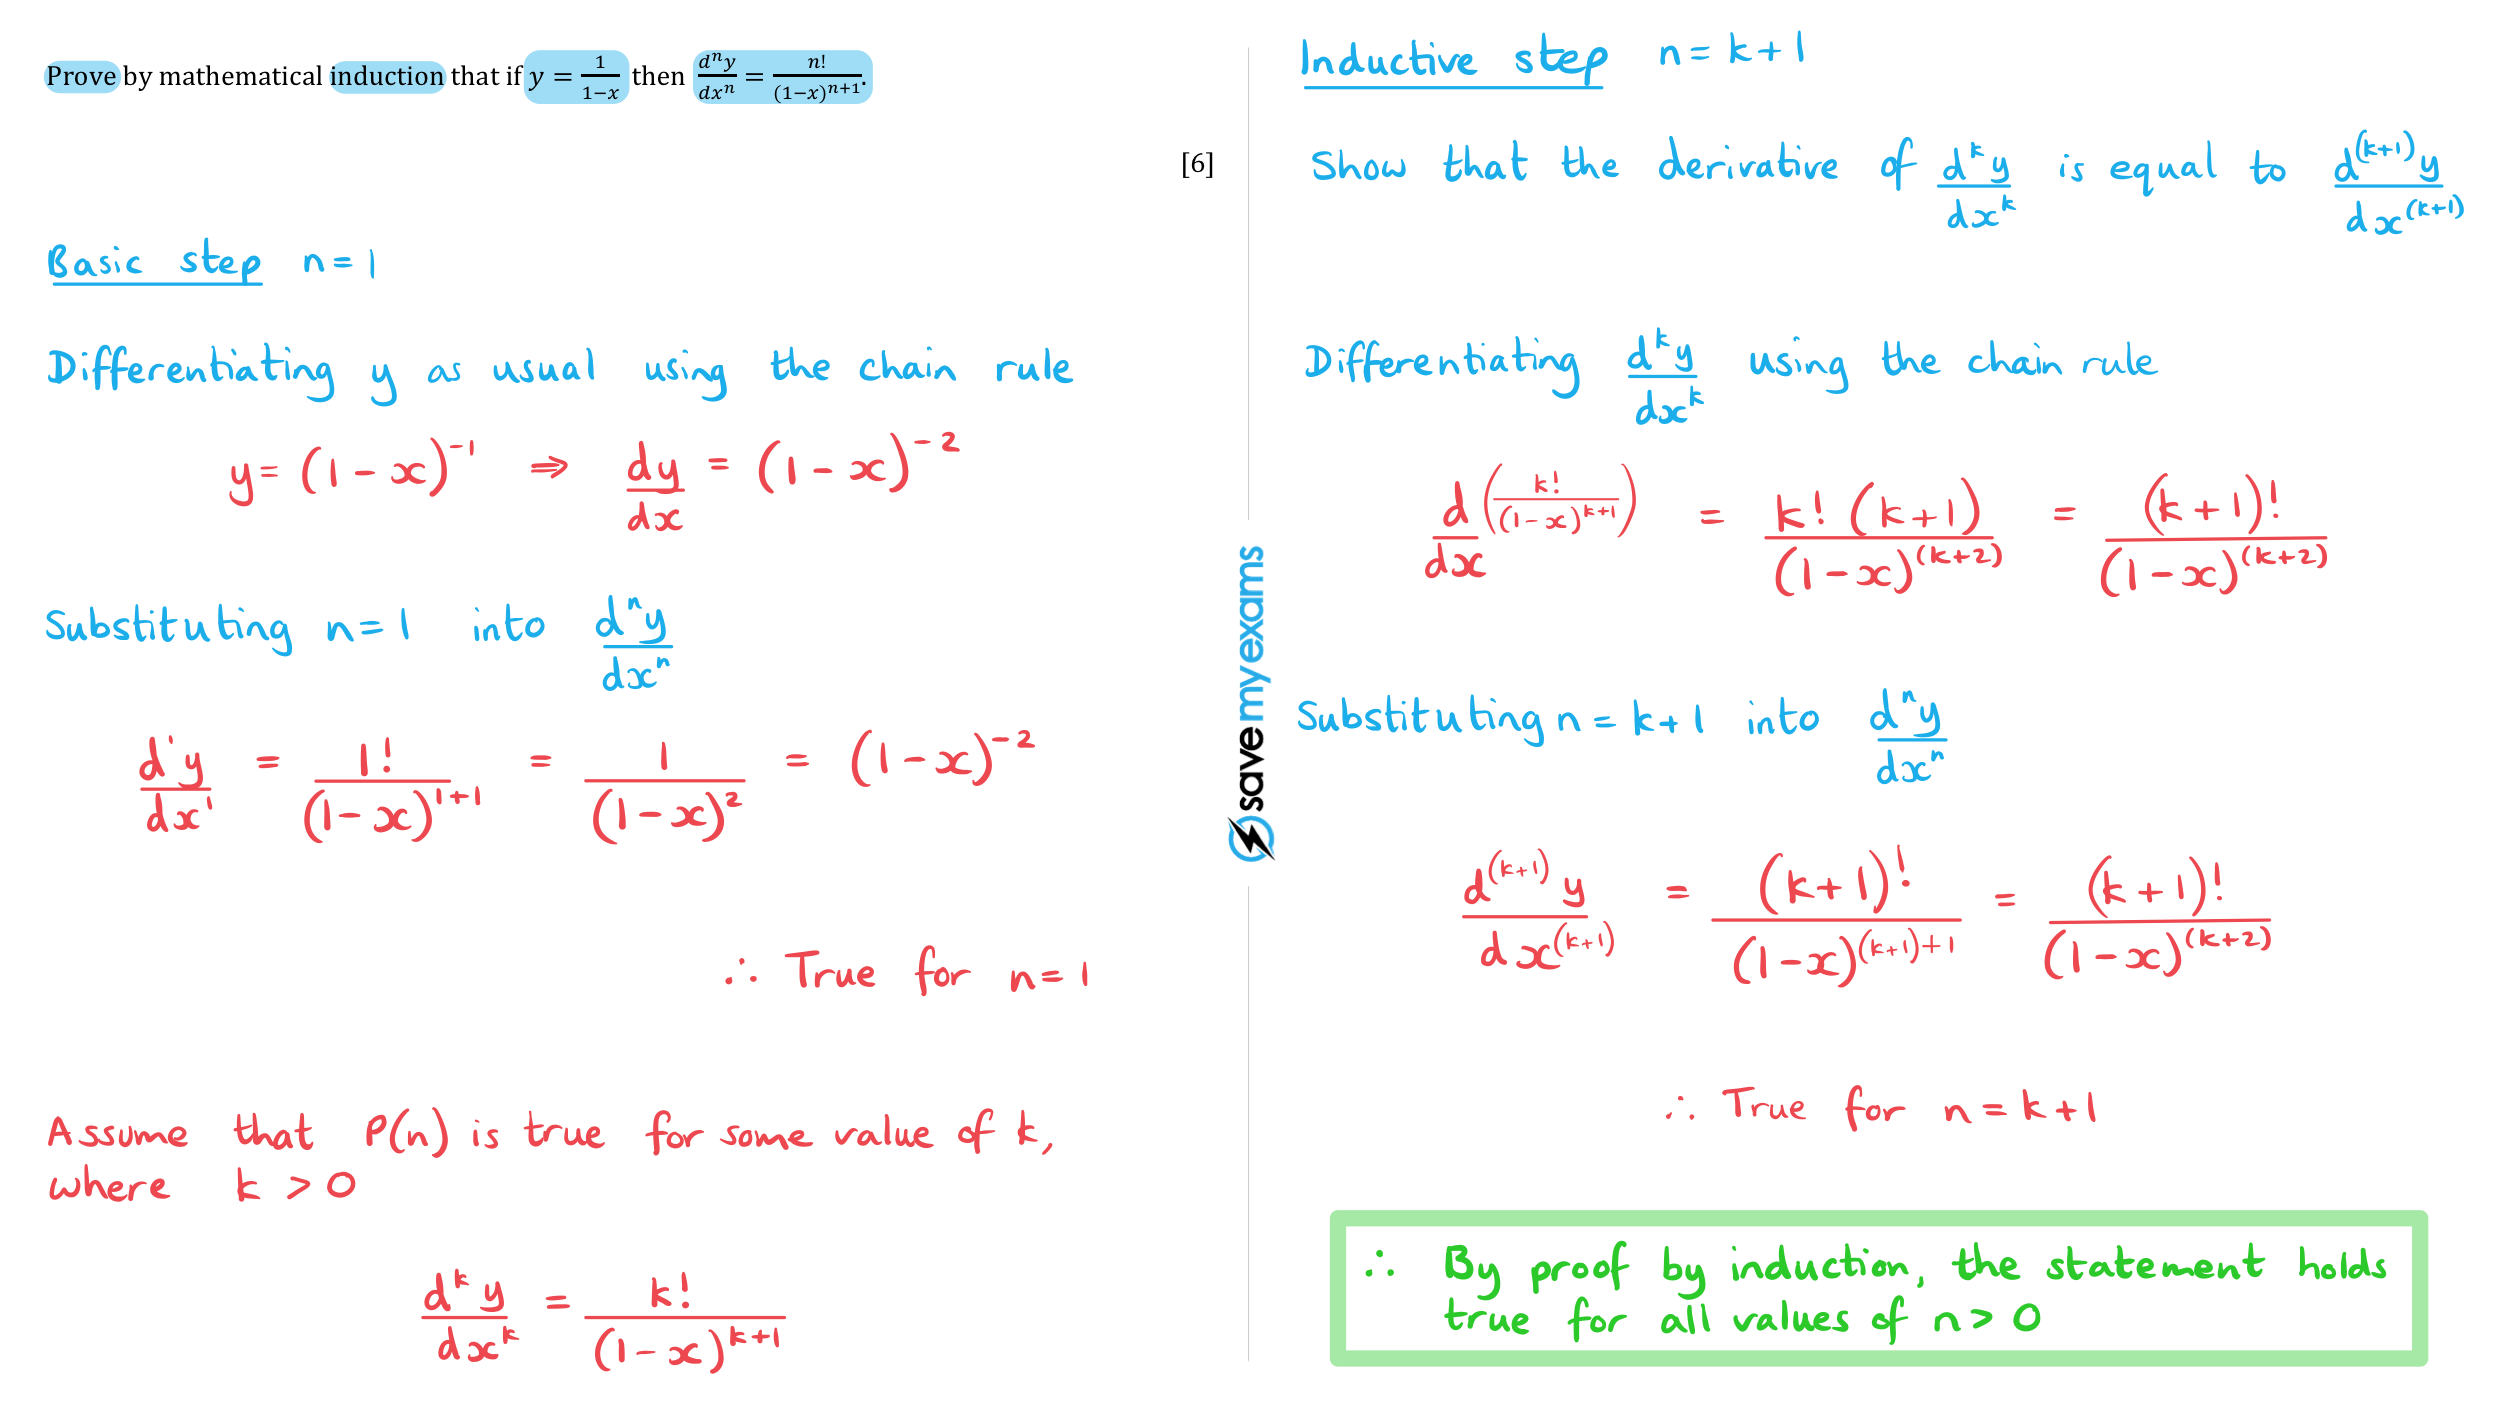 Prove by mathematical induction that if y = 1/(1−x) then dⁿy/dxⁿ = n!/(1−x)ⁿ⁺¹.
[6]
Basic step n=1
Differentiating y as usual using the chain rule
y = (1−x)⁻¹ ⇒ dy/dx = (1−x)⁻²
Substituting n=1 into dⁿy/dxⁿ
d¹y/dx¹ = 1!/(1−x)¹⁺¹ = 1/(1−x)² = (1−x)⁻²
∴ True for n=1
Assume that P(n) is true for some value of k,
where k > 0
dᵏy/dxᵏ = k!/(1−x)ᵏ⁺¹
savemyexams
Inductive step n=k+1
Show that the derivative of dᵏy/dxᵏ is equal to d⁽ᵏ⁺¹⁾y/dx⁽ᵏ⁺¹⁾
Differentiating dᵏy/dxᵏ using the chain rule
d/dx (k!/(1−x)ᵏ⁺¹) = k!(k+1)/(1−x)⁽ᵏ⁺²⁾ = (k+1)!/(1−x)⁽ᵏ⁺²⁾
Substituting n=k+1 into dⁿy/dxⁿ
d⁽ᵏ⁺¹⁾y/dx⁽ᵏ⁺¹⁾ = (k+1)!/(1−x)⁽ᵏ⁺¹⁾⁺¹ = (k+1)!/(1−x)⁽ᵏ⁺²⁾
∴ True for n=k+1
∴ By proof by induction, the statement holds
true for all values of n > 0